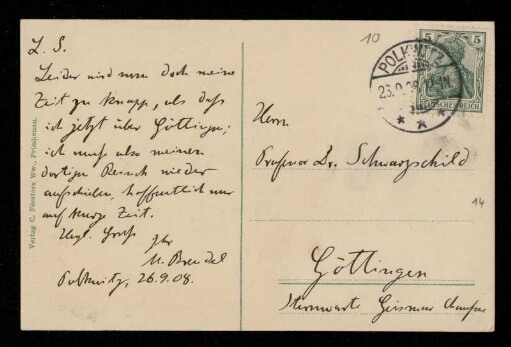 L. S.
Leider wird nun doch meine
Zeit zu knapp, als daß
ich jetzt über Göttingen;
ich muß also meinen
dortigen Besuch wieder
aufschieben, hoffentlich nur
auf kurze Zeit.
Herzl. Gruß
Ihr
M. Brendel
Polkwitz, 26.9.08.
Verlag C. Försters Ww., Primkenau.
10
POLKWITZ
26.9.08
5 5
DEUTSCHES REICH
Herrn
Professor Dr. Schwarzschild
14
Göttingen
Sternwarte Geismar Chaussee